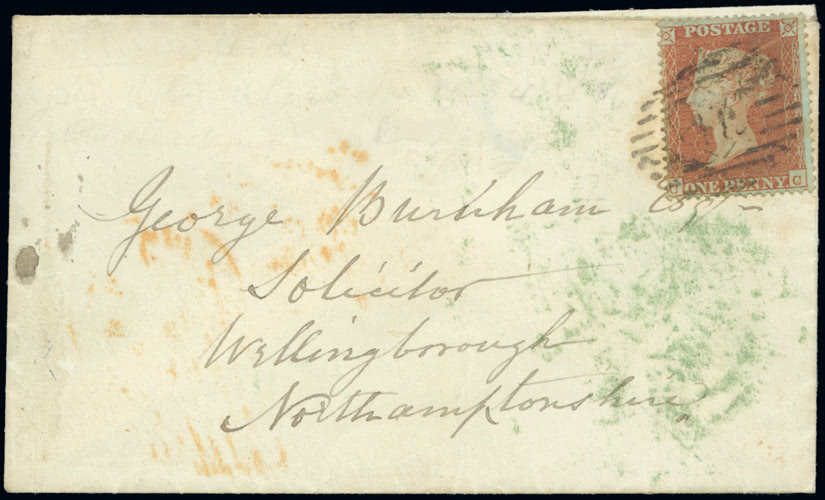 POSTAGE
ONE PENNY
C C
George Burnham Esqr
Solicitor
Wellingborough
Northamptonshire